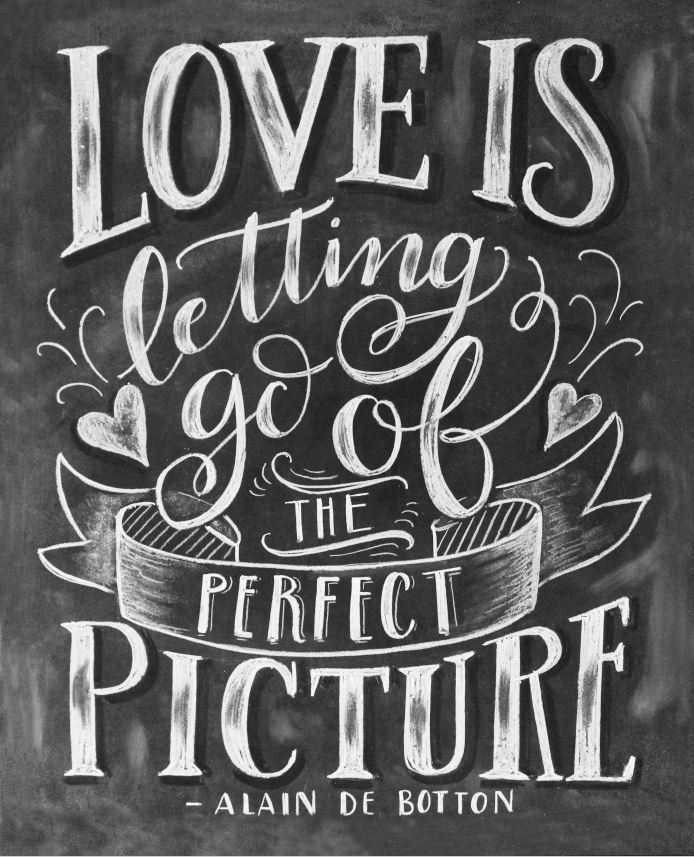 LOVE IS
letting
go of
THE
PERFECT
PICTURE
– ALAIN DE BOTTON